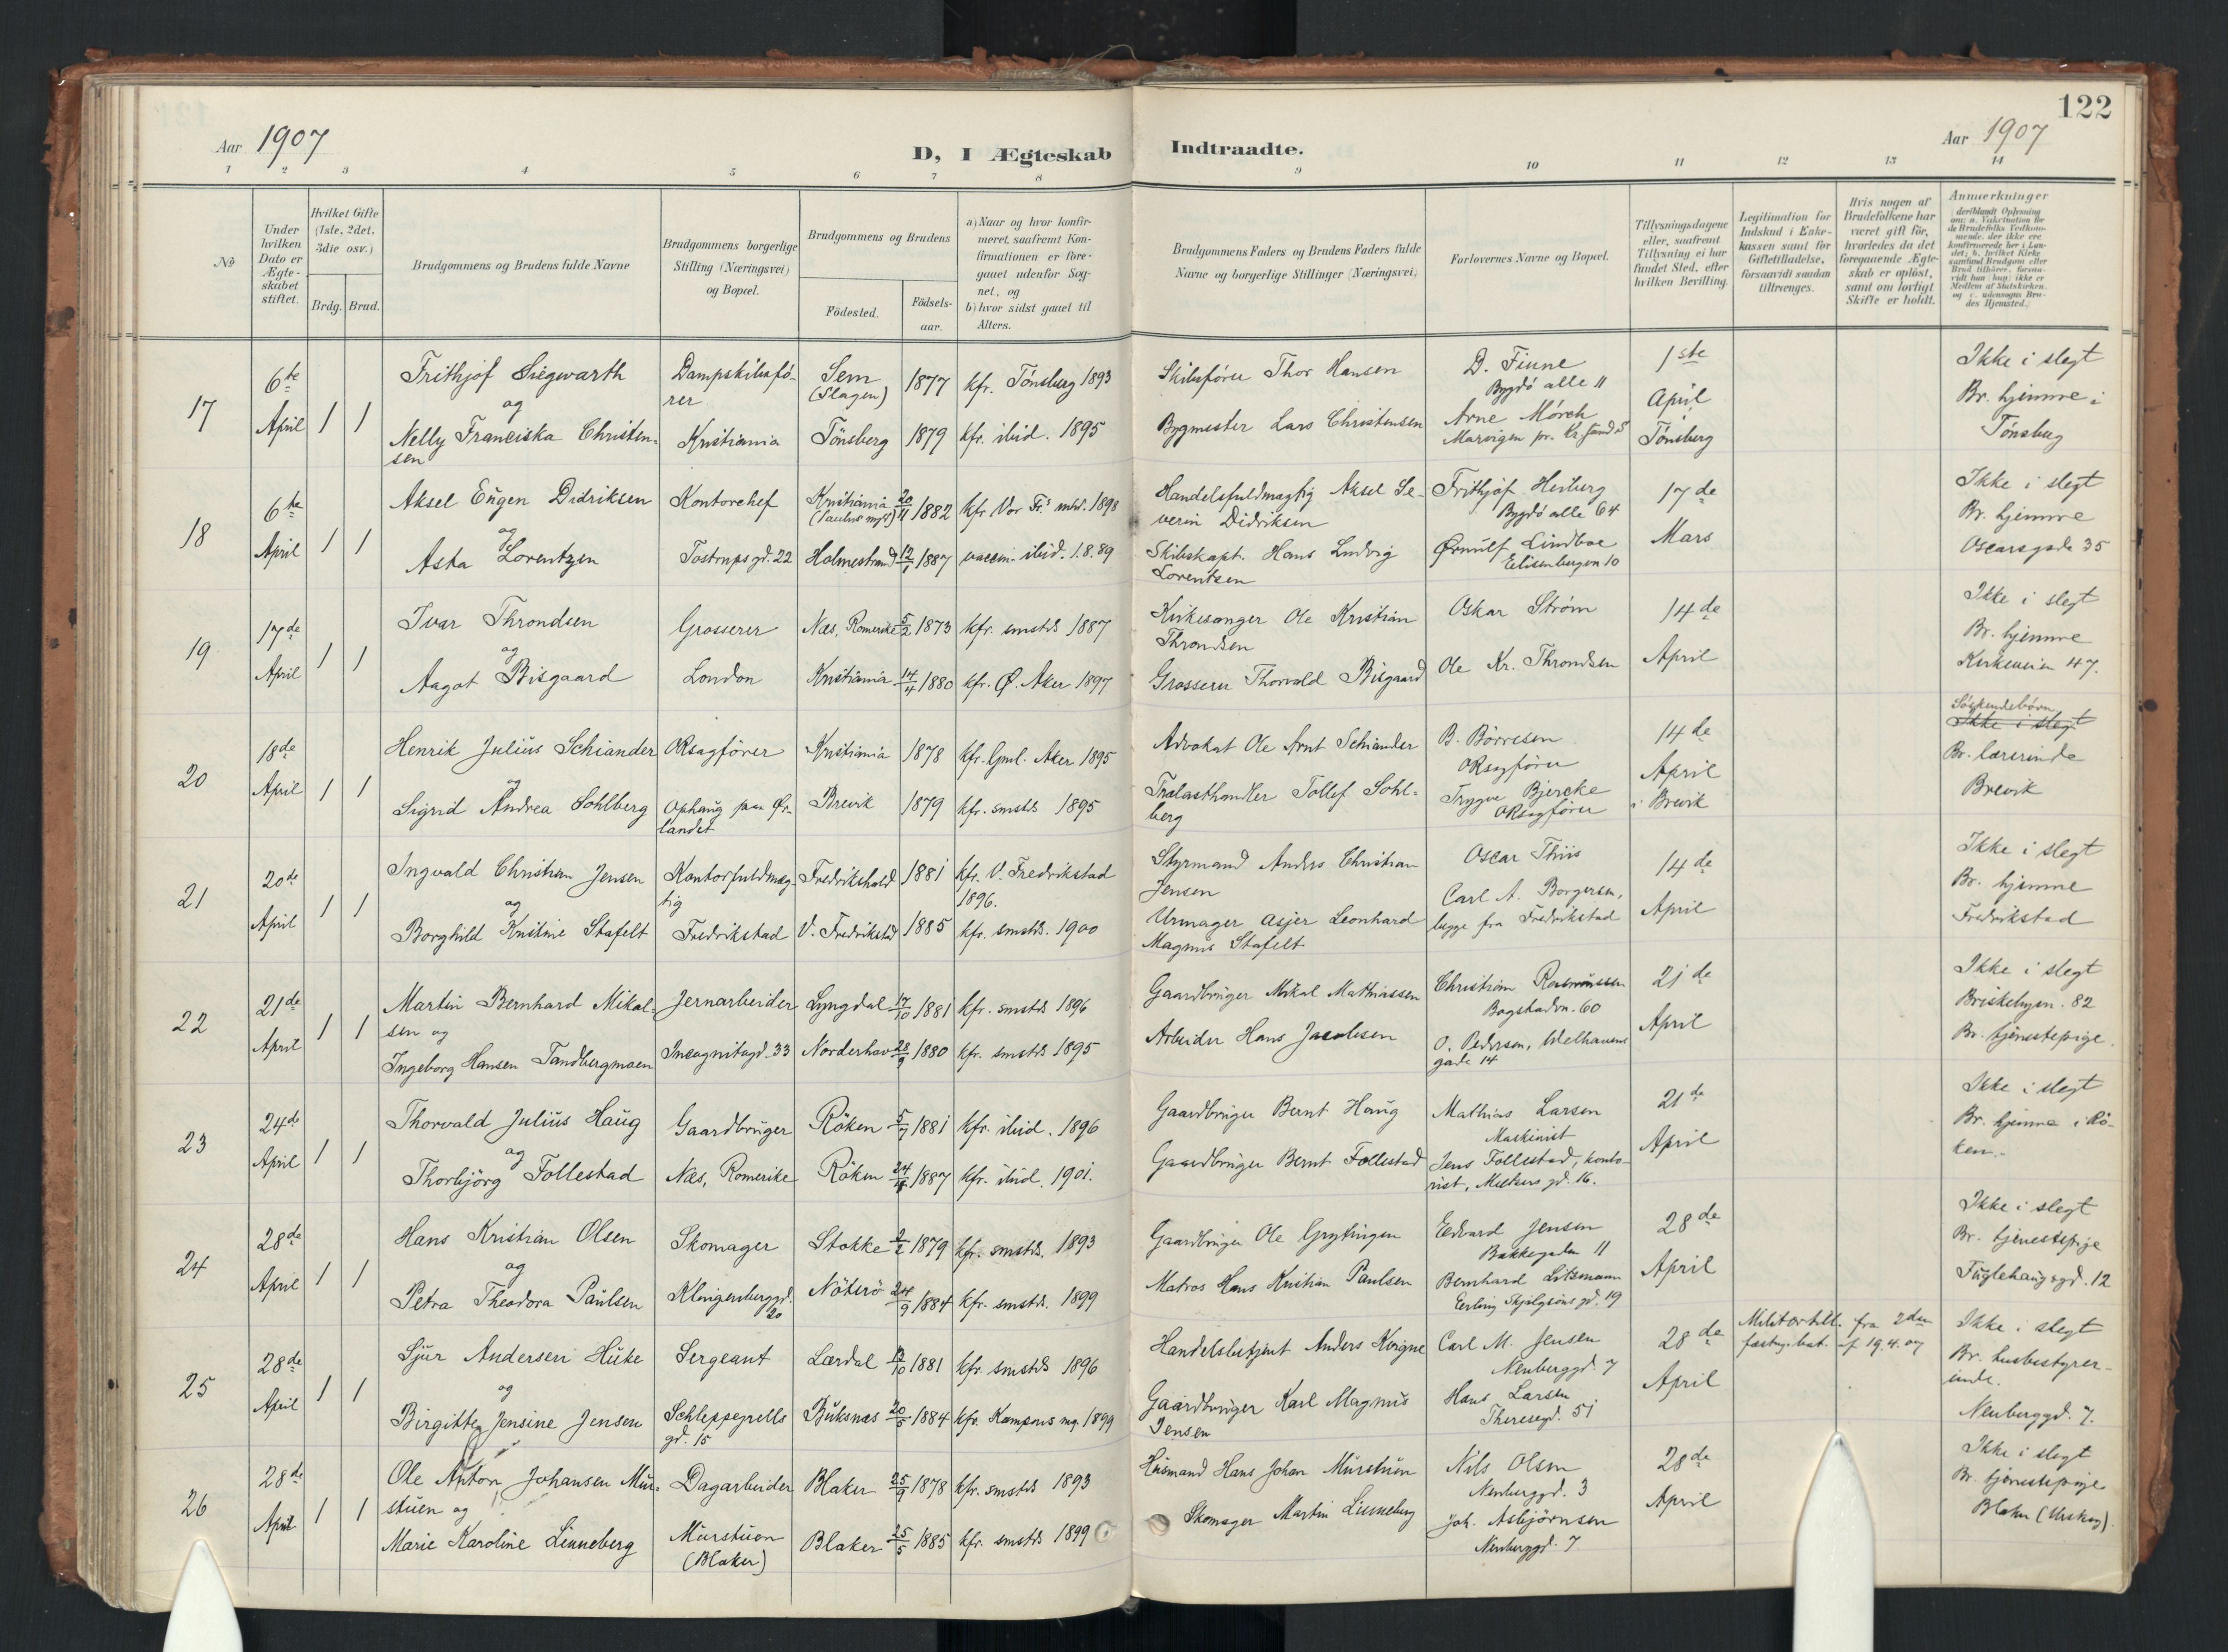 122
Aar 1907
D, I Ægteskab Indtraadte.
Aar 1907
1 2 3 4 5 6 7 8 9 10 11 12 13 14
No
Under hvilken Dato er Ægteskabet stiftet.
Hvilket Gifte (1ste, 2det, 3die osv.)
Brdg. Brud.
Brudgommens og Brudens fulde Navne
Brudgommens borgerlige Stilling (Næringsvei) og Bopæl.
Brudgommens og Brudens
Födested.
Födselsaar.
a) Naar og hvor konfirmeret, saafremt Konfirmationen er foregaaet udenfor Sognet, og
b) hvor sidst gaaet til Alters.
Brudgommens Faders og Brudens Faders fulde Navne og borgerlige Stillinger (Næringsvei)
Forlovernes Navne og Bopæl.
Tillysningsdagene eller, saafremt Tillysning ei har fundet Sted, efter hvilken Bevilling.
Legitimation for Indskud i Enkekassen samt for Giftetilladelse, forsaavidt saadan tiltrænges.
Hvis nogen af Brudefolkene har været gift för, hvorledes da det foregaaende Ægteskab er oplöst, samt om lovligt Skifte er holdt.
Anmærkninger
17
6te April
1 1
Frithjof Siegwarth
og
Nelly Franciska Christensen
Dampskibsförer
Kristiania
Sem (Slagen) 1877 kfr. Tönsberg 1893
Tönsberg 1879 kfr. ibid. 1895
Skibsförer Thor Hansen
Bygmester Lars Christensen
D. Finne
Bygdö alle 11
Arne Mörch
Marvigen pr. Kr.sand S
1ste April Tönsberg
Ikke i slegt
Br. hjemme i
Tönsberg
18
6te April
1 1
Aksel Eugen Didriksen
og
Asta Lorentzen
Kontorchef
Tostrupsgd. 22
Kristiania (Paulus mgh) 20/11 1882 kfr Vor Fr.s mh. 1898
Holmestrand 12/1 1887 vaccin. ibid. 1.8.89
Handelsfuldmægtig Aksel Severin Didriksen
Skibskapt. Hans Ludvig Lorentsen
Frithjof Heiberg
Bygdö alle 64
Ørnulf Lindboe
Elisenbergvn 10
17de Mars
Ikke i slegt
Br. hjemme
Oscarsgade 35
19
17de April
1 1
Ivar Throndsen
og
Aagot Bisgaard
Grosserer
London
Næs, Romerike 5/2 1873 kfr. smstds 1887
Kristiania 14/4 1880 kfr. Ø. Aker 1897
Kirkesanger Ole Kristian Throndsen
Grosserer Thorvald Bisgaard
Oskar Ström
Ole Kr. Throndsen
14de April
Ikke i slegt
Br. hjemme
Kirkeveien 47.
20
18de April
1 1
Henrik Julius Schiander
og
Sigrid Andrea Sohlberg
ORsagförer
Ophaug paa Ørlandet
Kristiania 1878 kfr. Gml. Aker 1895
Brevik 1879 kfr. smstds 1895
Advokat Ole Arnt Schiander
Trælasthandler Tollef Sohlberg
B. Börresen
ORsagförer
Trygve Bjercke
ORsagförer
14de April i Brevik
Söskendebörn
Ikke i slegt
Br. lærerinde
Brevik
21
20de April
1 1
Ingvald Christian Jensen
og
Borghild Kristine Stafelt
Kontorfuldmægtig
Fredrikstad
Fredrikshald 1881 kfr. V. Fredrikstad 1896.
V. Fredrikstad 1885 kfr. smstds. 1900
Styrmand Anders Christian Jensen
Urmager Asjer Leonhard Magnus Stafelt
Oscar Thiis
Carl A. Borgersen,
begge fra Fredrikstad
14de April
Ikke i slegt
Br. hjemme
Fredrikstad
22
21de April
1 1
Martin Bernhard Mikalsen og
Ingeborg Hansen Tandbergmoen
Jernarbeider
Incognitogd. 33
Lyngdal 17/10 1881 kfr. smstds 1896
Norderhov 28/9 1880 kfr. smstds 1895
Gaardbruger Mikal Mathiassen
Arbeider Hans Jacobsen
Christian Rasmussen
Bogstadvn. 60
O. Pedersen, Welhavens gade 14
21de April
Ikke i slegt
Briskebyvn. 82
Br. tjenestepige.
23
24de April
1 1
Thorvald Julius Haug
og
Thorbjörg Follestad
Gaardbruger
Næs, Romerike
Röken 5/7 1881 kfr. ibid. 1896
Röken 24/4 1887 kfr. ibid. 1901.
Gaardbruger Bernt Haug
Gaardbruger Bernt Follestad
Mathias Larsen
Maskinist
Jens Follestad, kontorist, Meltzers gd. 16.
21de April
Ikke i slegt
Br. hjemme i Röken.
24
28de April
1 1
Hans Kristian Olsen
og
Petra Theodora Paulsen
Skomager
Klingenberggd. 20
Stokke 2/2 1879 kfr. smstds. 1893
Nöterö 24/9 1884 kfr. smstds. 1899
Gaardbruger Ole Grytingen
Matros Hans Kristian Paulsen
Edvard Jensen
Bakkegaden 11
Bernhard Litzmann
Erling Skjalgsöns gd. 19
28de April
Ikke i slegt
Br. tjenestepige
Fuglehauggd. 12
25
28de April
1 1
Sjur Andersen Huke
og
Birgitte Jensine Jensen
Sergeant
Schleppegrells gd. 15
Lærdal 13/10 1881 kfr. smstds 1896
Buksnæs 20/5 1884 kfr. Kampens mg. 1899
Handelsbetjent Anders Kvigne
Gaardbruger Karl Magnus Jensen
Carl M. Jensen
Neuberggd. 7
Hans Larsen
Theresegd. 51
28de April
Militærtill. fra 2den
fæstn.bat. af 19.4.07
Ikke i slegt
Br. husbestyrerinde.
Neuberggd. 7.
26
28de April
1 1
Ole Anton Johansen Murstuen og
Marie Karoline Linneberg
Dagarbeider
Murstuen
(Blaker)
Blaker 25/9 1878 kfr. smstds 1893
Blaker 25/5 1885 kfr. smstds 1899
Husmand Hans Johan Murstuen
Skomager Martin Linneberg
Nils Olsen
Neuberggd. 3
Joh. Asbjörnsen
Neuberggd. 7
28de April
Ikke i slegt
Br. tjenestepige
Blaker (Urskog).